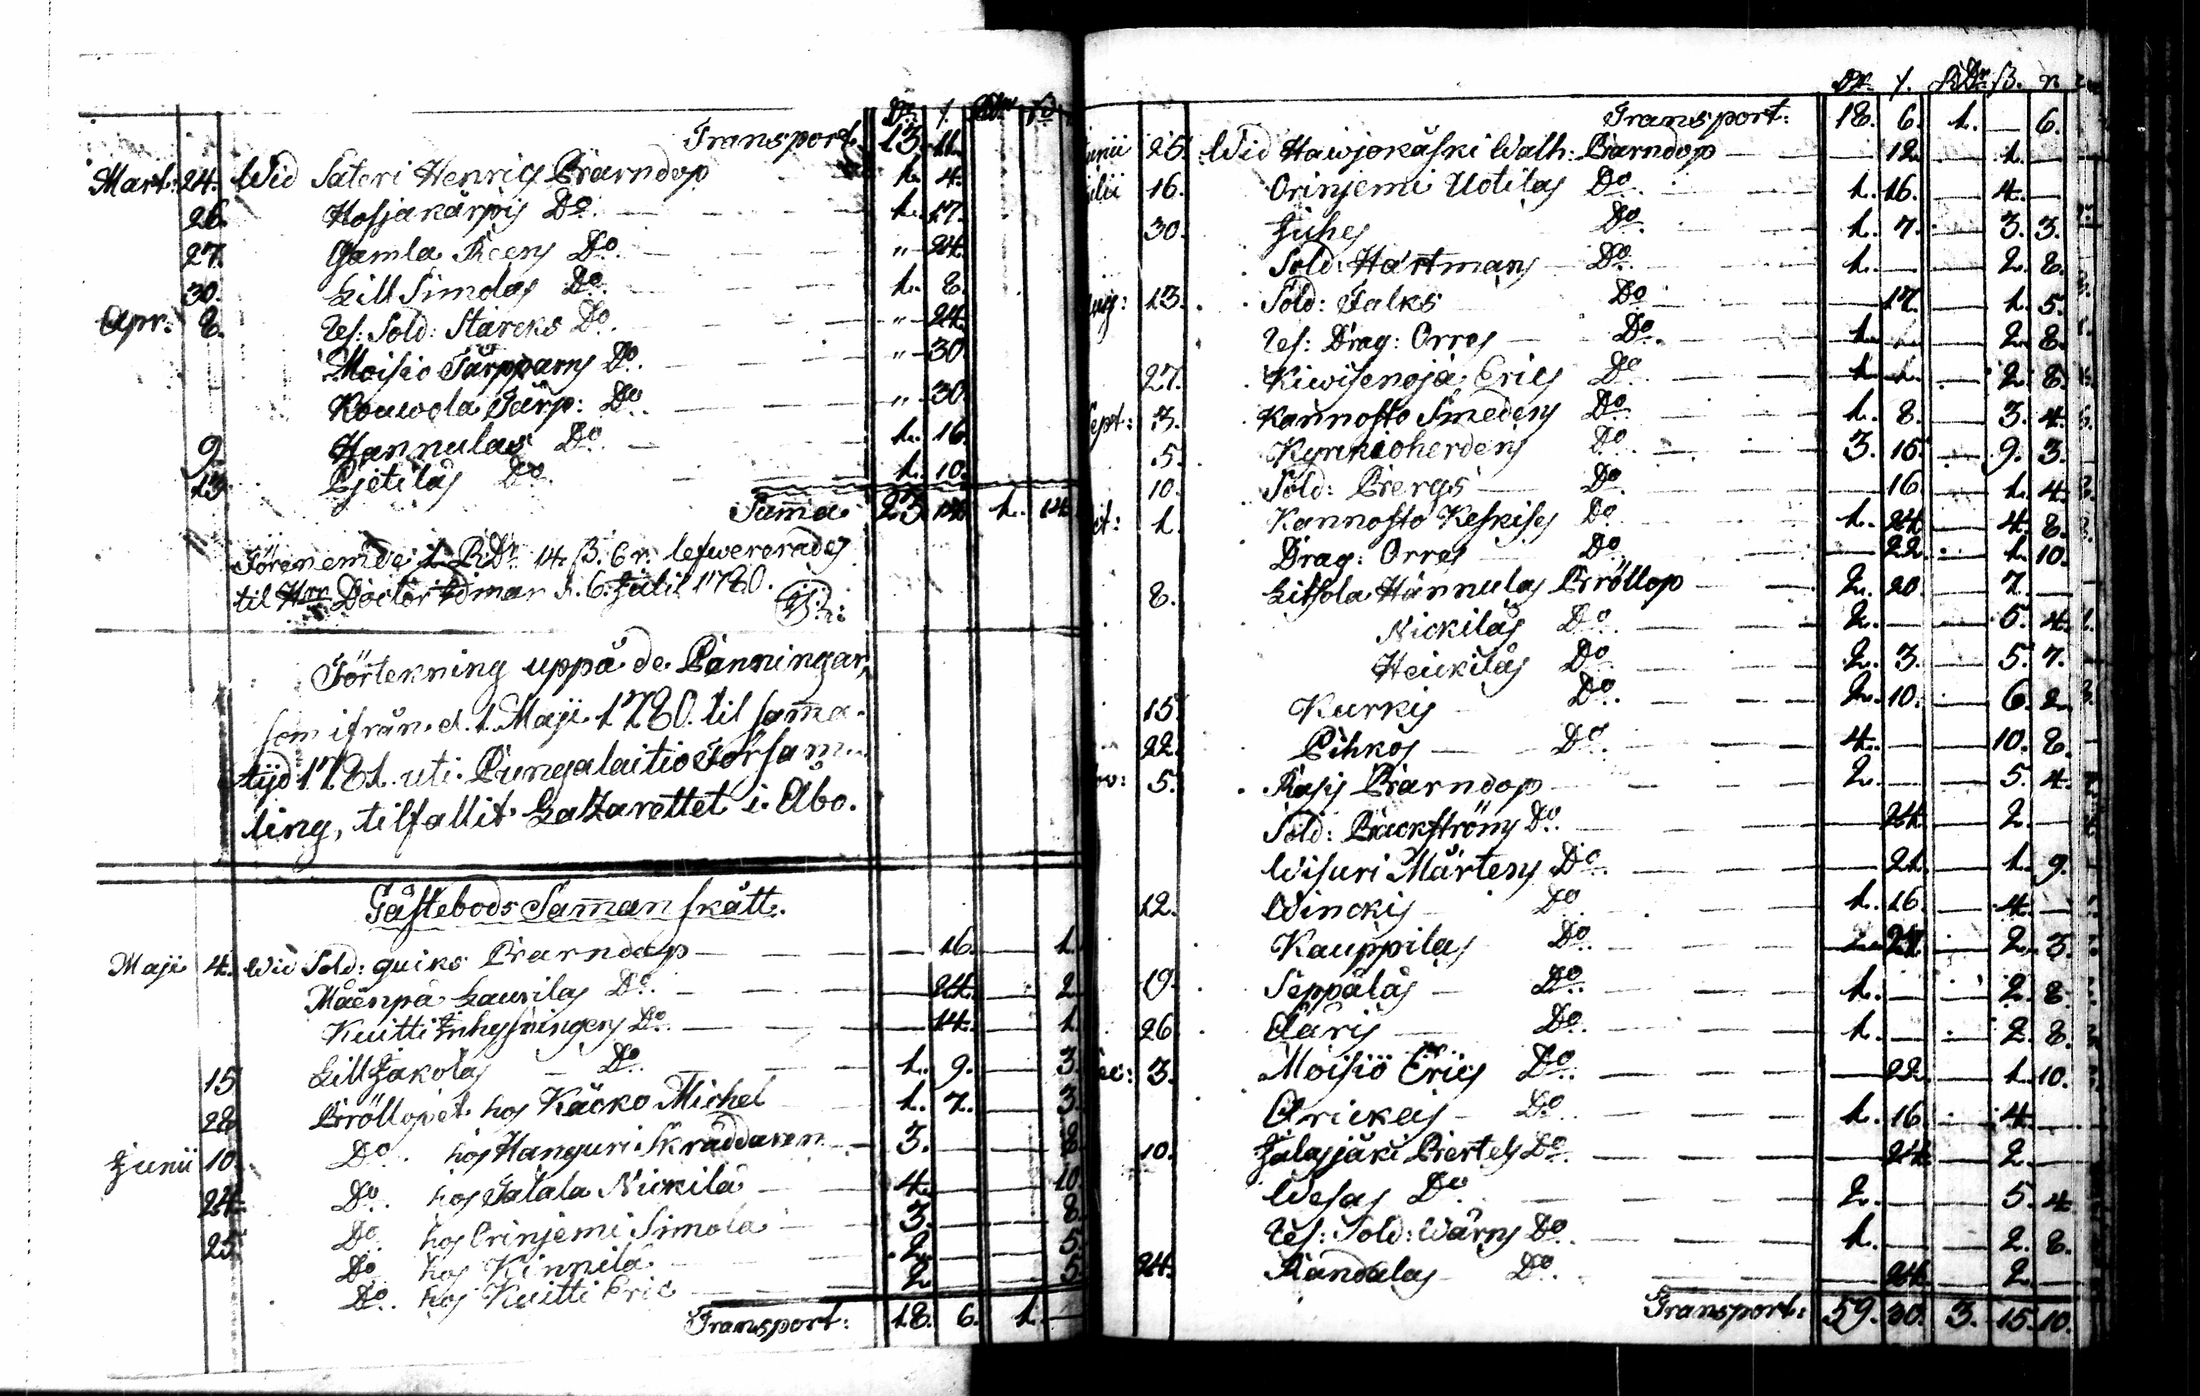 Dr. /.
Transport: 13. 11.
Mart: 24. Wid Sateri Henrics Barndop 1. 4.
26. Hosjakärpis Do. 1. 17.
27. Gamla Do. " 24.
30. Lill Simolas Do. 1. 8.
Apr: 8. Ref: Sold: Starcks Do. " 24.
Moisio Tårppars Do. " 30.
Kouwola Tårp: Do. " 30.
9. Hannulas Do. 1. 16.
13. Pjetilas Do. 1. 10.
Summa 23. 14. 1. 14.
Förenemde 1. RDr. 14 ß. 6 r. lefwererades
til Hrr Doctor d. 6. Julii 1780.
Förtekning uppå de Penningar,
som ifrån d. 1. Maji 1780. til samma
tijd 1781. uti Pungalaitio Försam-
ling, tilfallit Lazarettet i Åbo.
Gästebods Sammanskått.
Maji 4. Wid Sold: Quiks Barndop — 16. — 1.
Mäenpä Laurilas Do. — 24. — 2.
Kuitti Inhysningens Do. — 14. — 1.
15 Lill Jakolas Do. 1. 9. — 3.
28 Bröllopet hos Käcko Michel 1. 7. — 3.
Junii 10. Do. hos Hanguri Skräddaren 3. — — 8.
24. Do. hos Jalala Nickilä 4. — — 10.
25 Do. hos Orinjemi Simola 3. — — 8.
Do. hos Kinnilä 2. — — 5.
Do. hos Kuitti Eric 2. — — 5.
Transport: 18. 6. 1. —
Dr. /. RDr. ß. r.
Transport: 18. 6. 1. — 6.
Junii 25. Wid Hawjokäski Walh: Barndop — 12. — 1. —
Julii 16. Orinjemi Uotilas Do. 1. 16. — 4. —
30. Juhes Do. 1. 7. — 3. 3.
Sold: Hartmans Do. 1. — — 2. 8.
Aug: 13. Sold: Falks Do. — 17. — 1. 5.
Ref: Drag: Orres Do. 1. — — 2. 8.
27. Kiwisenoja Erics Do. 1. — — 2. 8.
Sept: 3. Kannosto Smedens Do. 1. 8. — 3. 4.
5. Kyrkioherdens Do. 3. 15. — 9. 3.
10. Sold: Bergs Do. — 16. — 1. 4.
Oct: 1. Kannosto Keskises Do. 1. 24. — 4. 8.
Drag: Orres Do. — 22. — 1. 10.
8. Hannulas Bröllop 2. 20. — 7. —
Nickiläs Do. 2. — — 5. 4.
Heickiläs Do. 2. 3. — 5. 7.
15. Kurkis Do. 2. 10. — 6. 2.
22. Pihkos Do. 4. — — 10. 8.
Nov: 5. Rasis Barndop 2. — — 5. 4.
Sold: Bäckströms Do. — 24. — 2. —
Wisuri Mårtens Do. — 21. — 1. 9.
12. Winckis Do. 1. 16. — 4. —
Kauppilas Do. — 27. — 2. 3.
19. Seppäläs Do. 1. — — 2. 8.
26. Do. 1. — — 2. 8.
Dec: 3. Moisiö Erics Do. — 22. — 1. 10.
Do. 1. 16. — 4. —
10. Jalasjäri Bertels Do. — 24. — 2. —
Wesas Do. 2. — — 5. 4.
Ref: Sold: Wärns Do. 1. — — 2. 8.
24. Randalas Do. — 24. — 2. —
Transport: 59. 30. 3. 15. 10.